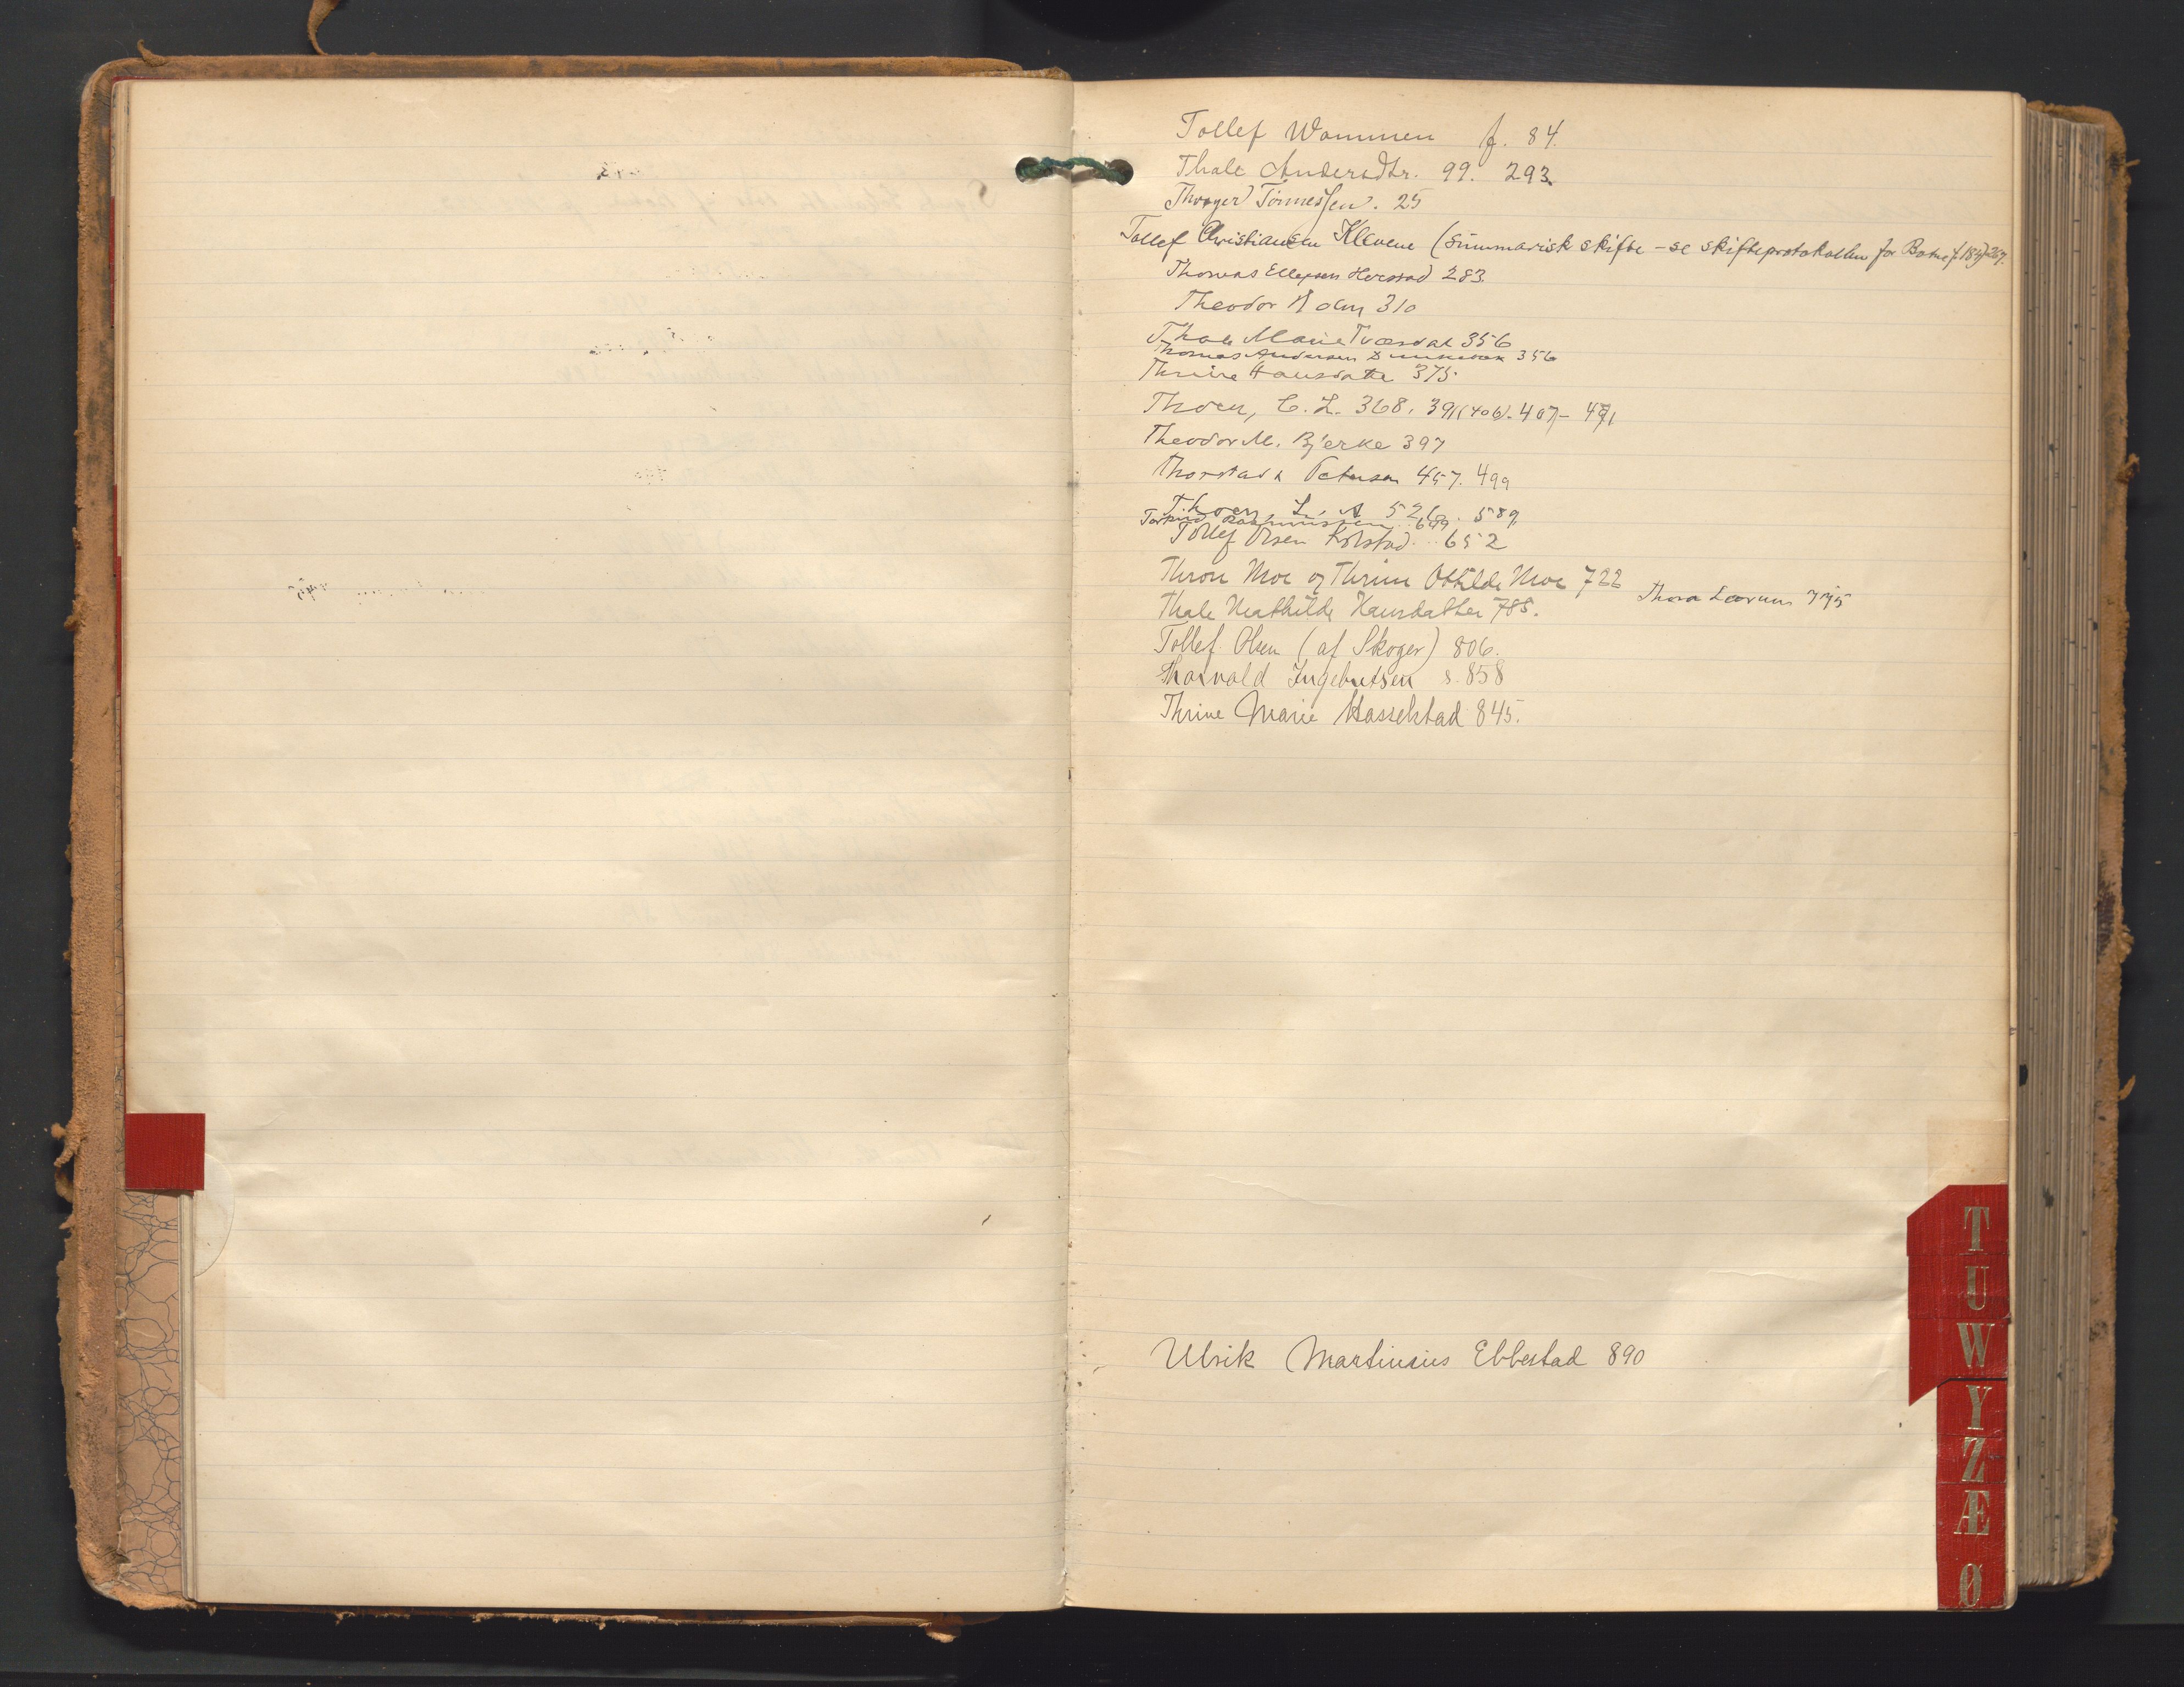 Tollef Wammen f. 84.
Thale Andersdtr. 99. 293.
Thorger Tönnessen. 25
Tollef Christiansen Klevene (Summarisk skifte – se skifteprotokollen for Botne f. 185) 267.
Thomas Ellefsen Horsrød 283.
Theodor 310
Thale Marie Tværdal 356
Thomas Andersen 356
Thrine Hansdatter 375.
Thoen, C. L. 368. 391 (406). 407 – 491
Theodor M. Bjerke 397
Thorstad & Petersen 457. 499
Thoen, L. A 526. 589,
Rasmussen 649
Tollef Olsen Kolstad 652
Thron Moe og Thrine Othilde Moe 722
Thora 775
Thale Mathilde Hansdatter 785.
Tollef Olsen (af Skoger) 806.
Thorvald Ingebretsen s. 858
Thrine Marie Hasselstad 845.
Ulrik Martinius Ebbestad 890
T
U
W
Y
Z
Æ
Ø